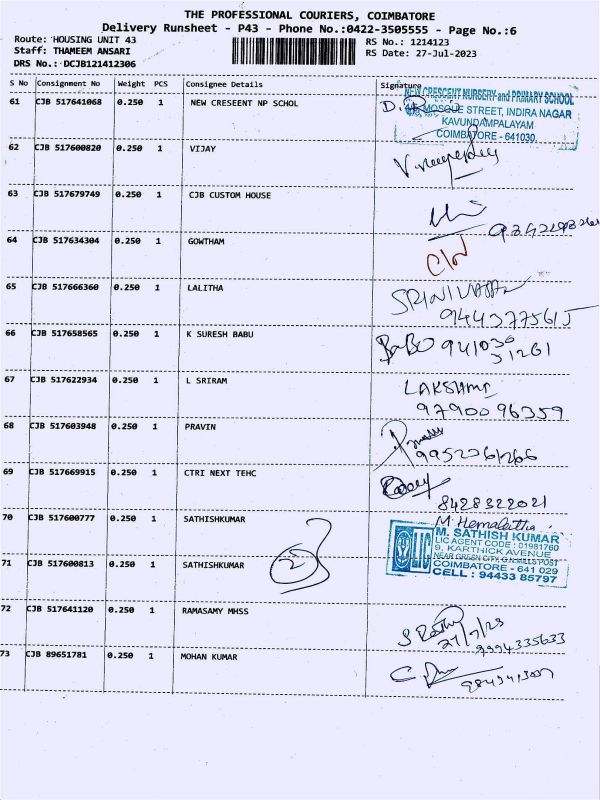 THE PROFESSIONAL COURIERS, COIMBATORE
Delivery Runsheet - P43 - Phone No.:0422-3505555 - Page No.:6
Route: HOUSING UNIT 43
RS No.: 1214123
Staff: THAMEEM ANSARI
RS Date: 27-Jul-2023
DRS No.: DCJB121412306
S No Consignment No Weight PCS Consignee Details Signature
61 CJB 517641068 0.250 1 NEW CRESEENT NP SCHOL
NEW CRESCENT NURSERY and PRIMARY SCHOOL
MOSQUE STREET, INDIRA NAGAR
KAVUNDAMPALAYAM
COIMBATORE - 641030.
62 CJB 517600820 0.250 1 VIJAY
63 CJB 517679749 0.250 1 CJB CUSTOM HOUSE
64 CJB 517634304 0.250 1 GOWTHAM
65 CJB 517666360 0.250 1 LALITHA
9443775615
66 CJB 517658565 0.250 1 K SURESH BABU
BaBO 941036
31261
67 CJB 517622934 0.250 1 L SRIRAM
LAKSHMI
9790096359
68 CJB 517603948 0.250 1 PRAVIN
69 CJB 517669915 0.250 1 CTRI NEXT TEHC
8428322021
70 CJB 517600777 0.250 1 SATHISHKUMAR
M. Hemalatha
M. SATHISH KUMAR
LIC AGENT CODE : 01981760
9, KARTHICK AVENUE
NEAR GREEN CITY, G.N.MILLS POST
COIMBATORE - 641 029
CELL : 94433 85797
LIC
2
71 CJB 517600813 0.250 1 SATHISHKUMAR
72 CJB 517641120 0.250 1 RAMASAMY MHSS
27/7/23
9994335633
73 CJB 89651781 0.250 1 MOHAN KUMAR